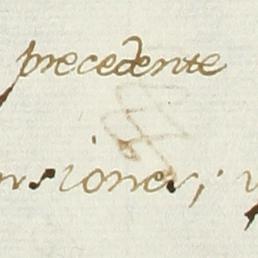 precedente
nsiones; y